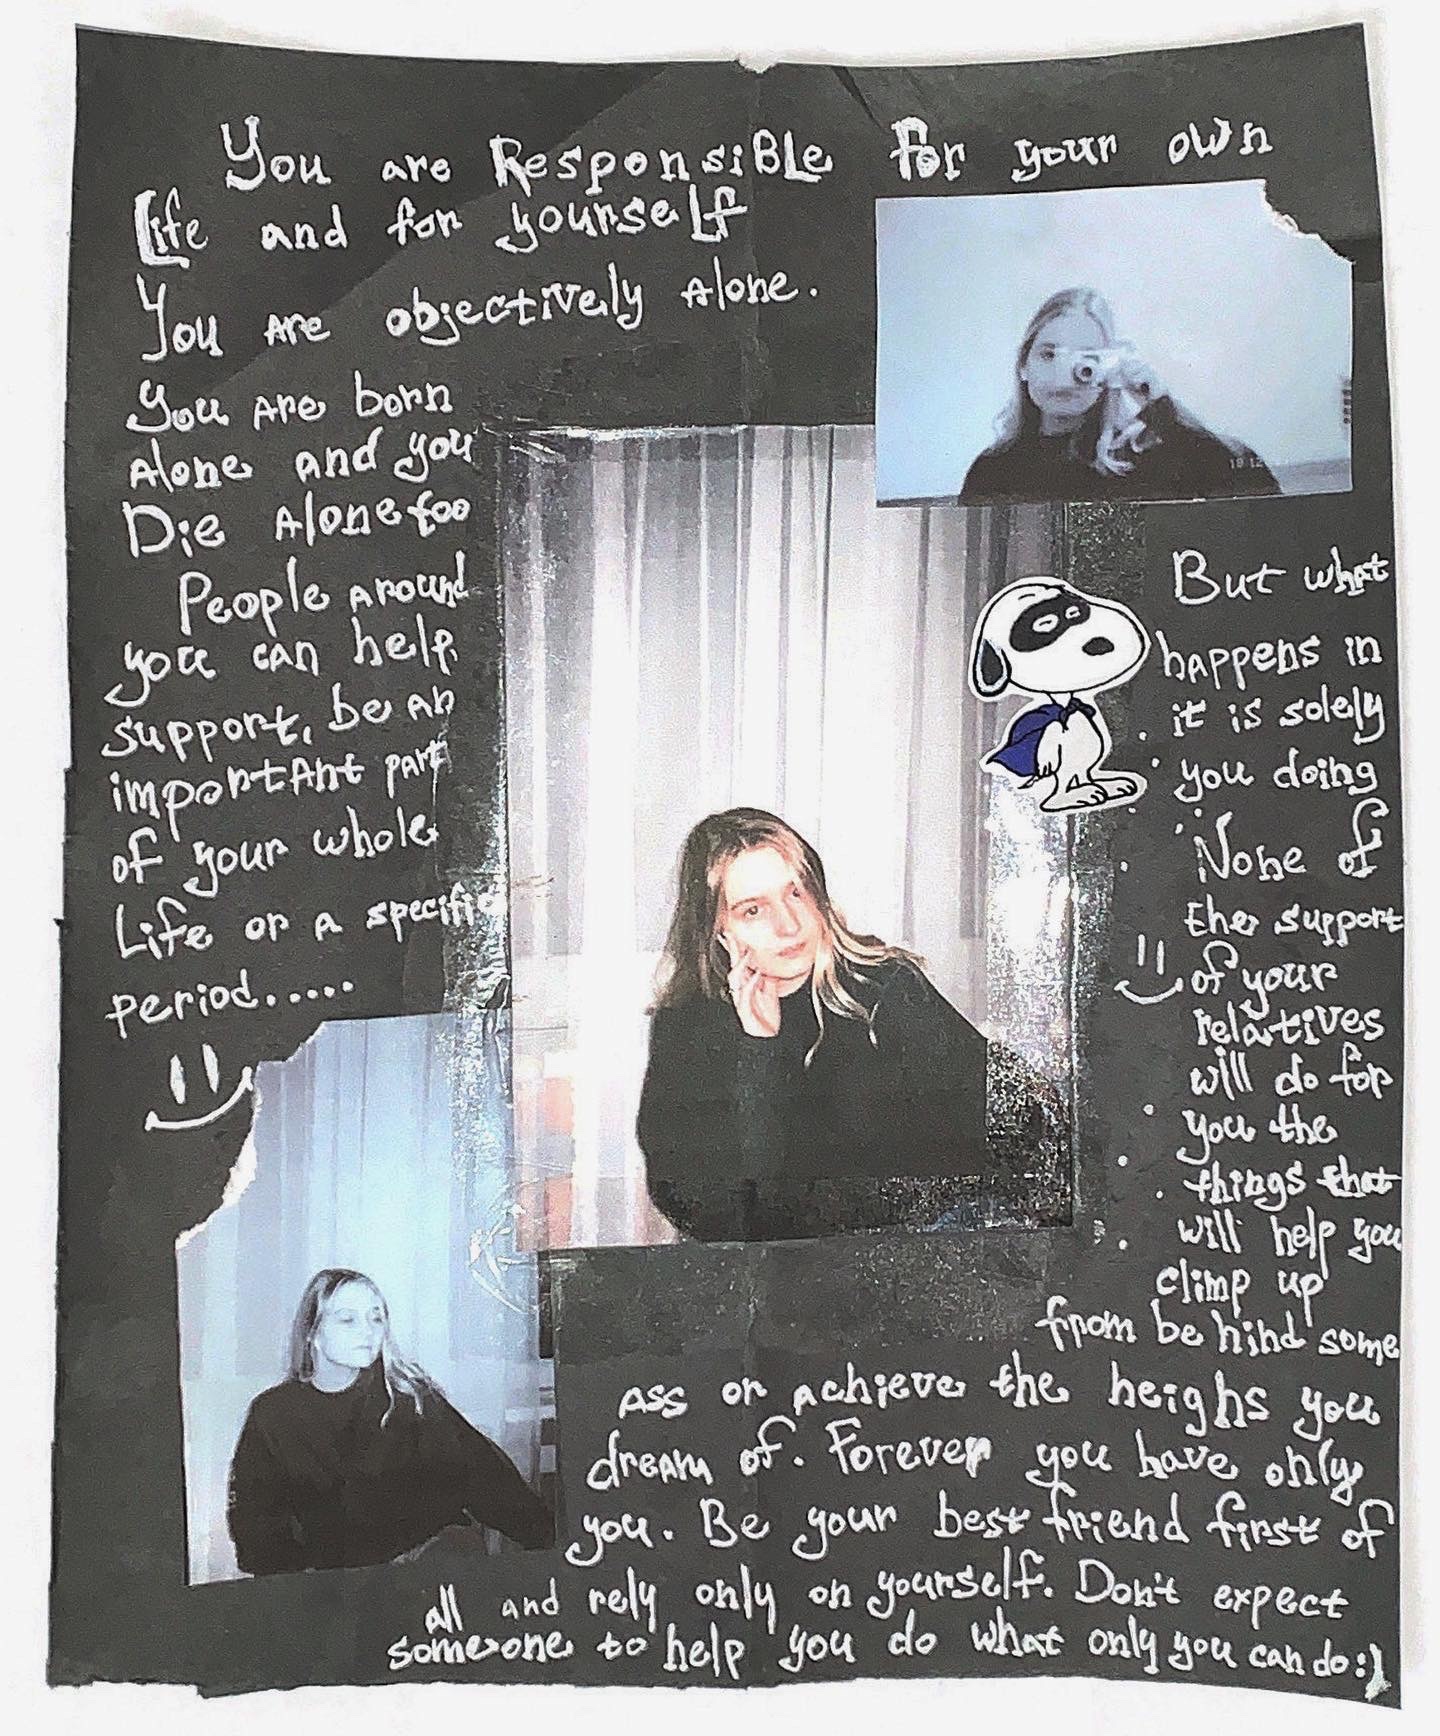 You are Responsible for your own
Life and for yourself
You are objectively alone.
You are born
alone and you
Die alone too
People around
you can help,
support, be an
important part
of your whole
Life or a specific
period.....
But what
happens in
it is solely
you doing
None of
the support
of your
relatives
will do for
you the
things that
will help you
climp up
from be hind some
ass or achieve the heighs you
dream of. Forever you have only
you. Be your best friend first of
all and rely only on yourself. Don't expect
someone to help you do what only you can do:)